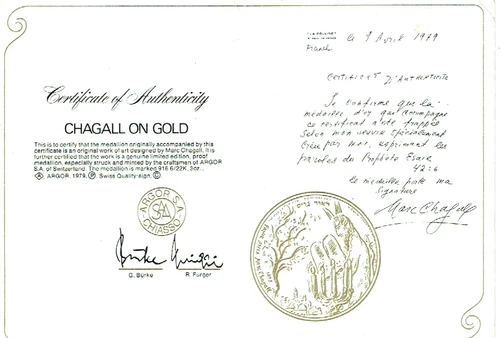 Certificate of Authenticity
CHAGALL ON GOLD
This is to certify that the medallion originally accompanied by this
certificate is an original work of art designed by Marc Chagall. It is
further certified that the work is a genuine limited edition, proof
medallion, especially struck and minted by the craftsmen of ARGOR
S.A. of Switzerland. The medallion is marked 916.6/22K, 3oz.,
ARGOR, 1979, Swiss Quality-sign,
ARGOR S.A.
CHIASSO
G. Bürke R. Furger
le 9 Avril 1979
France
Certificat D'Authenticité
Je confirme que la
médaille d'or qui accompagne
ce certificat a été frappée
selon mon oeuvre spécialement
créée par moi, exprimant la
paroles du Prophète Esaïe
42:6
la médaille porte ma
signature
Marc Chagall